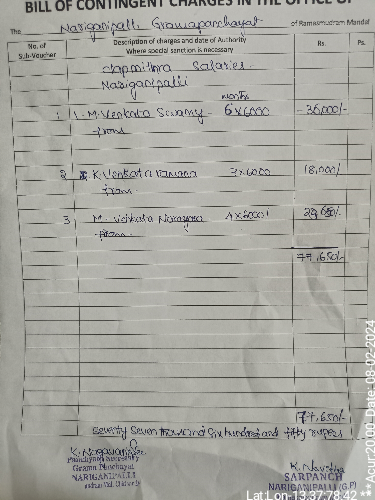 BILL OF CONTINGENT CHARGES IN THE OFFICE OF
The Nariganipalli Gramapanchayat of Ramasmudram Mandal
No. of Sub-Voucher Description of charges and date of Authority Where special sanction is necessary Rs. Ps.
Salaries
Nariganipalli
months
1 1. M. Venkata Swamy 6x6000 36,000/-
from
2 K. Venkata ramana 3x6000 18,000/
from.
3 M. Venkata Narayana 4x6000 23,650/-
from.
77,650/-
77,650/-
Seventy Seven thousand Six hundred and fifty rupees
Panchayat Secretary
Grama Panchayat
NARIGANIPALLI
K. Navitha
SARPANCH
NARIGANIPALLI (G.P)
Lat,Lon-13.37,78.42 ** Acur-20.00 Date-08-02-2024